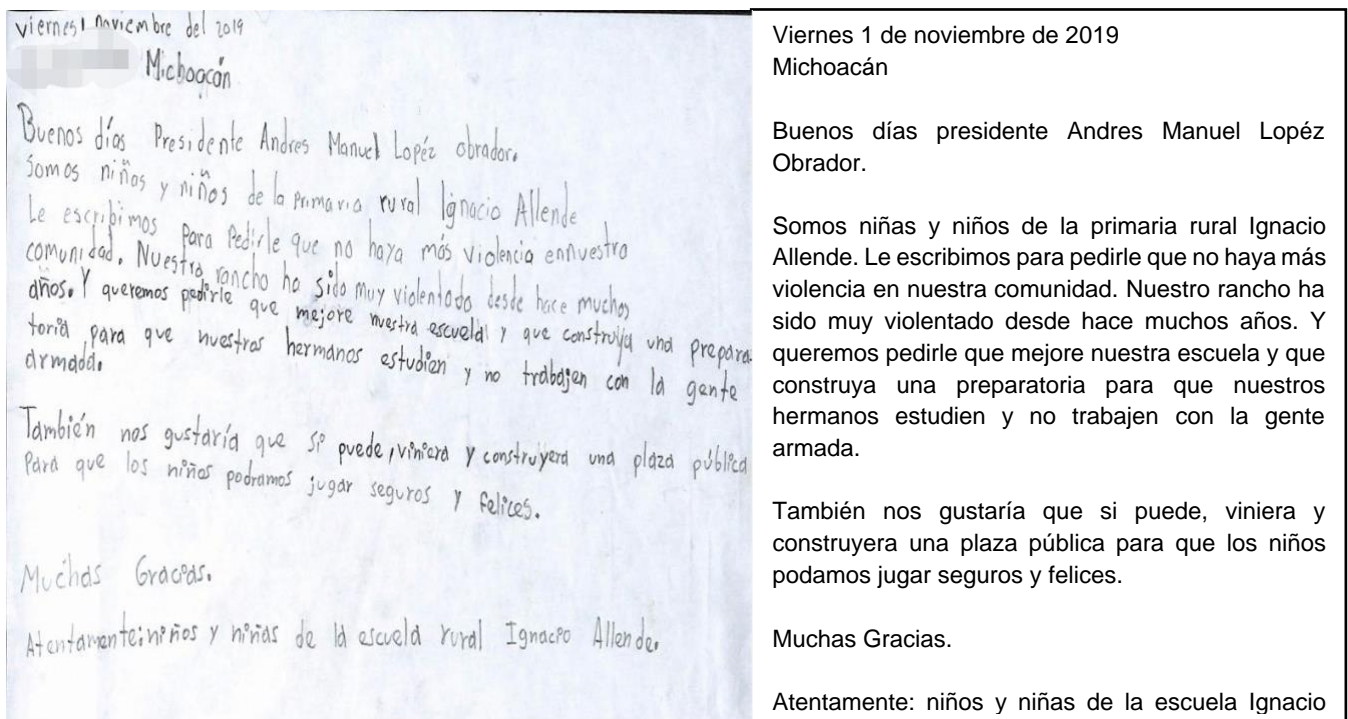 viernes 1 noviembre del 2019
Michoacán
Buenos días Presidente Andres Manuel Lopéz obrador.
Somos niñas y niños de la primaria rural Ignacio Allende
Le escribimos para Pedirle que no haya más violencia ennuestra
comunidad. Nuestro rancho ha sido muy violentado desde hace muchos
años. Y queremos pedirle que mejore nuestra escuela y que construya una prepara
toria para que nuestros hermanos estudien y no trabajen con la gente
armada.
También nos gustaría que si puede, viniera y construyera una plaza pública
Para que los niños podramos jugar seguros y felices.
Muchas Gracias.
Atentamente: niños y niñas de la escuela rural Ignacio Allende.
Viernes 1 de noviembre de 2019
Michoacán
Buenos días presidente Andres Manuel Lopéz
Obrador.
Somos niñas y niños de la primaria rural Ignacio
Allende. Le escribimos para pedirle que no haya más
violencia en nuestra comunidad. Nuestro rancho ha
sido muy violentado desde hace muchos años. Y
queremos pedirle que mejore nuestra escuela y que
construya una preparatoria para que nuestros
hermanos estudien y no trabajen con la gente
armada.
También nos gustaría que si puede, viniera y
construyera una plaza pública para que los niños
podamos jugar seguros y felices.
Muchas Gracias.
Atentamente: niños y niñas de la escuela Ignacio